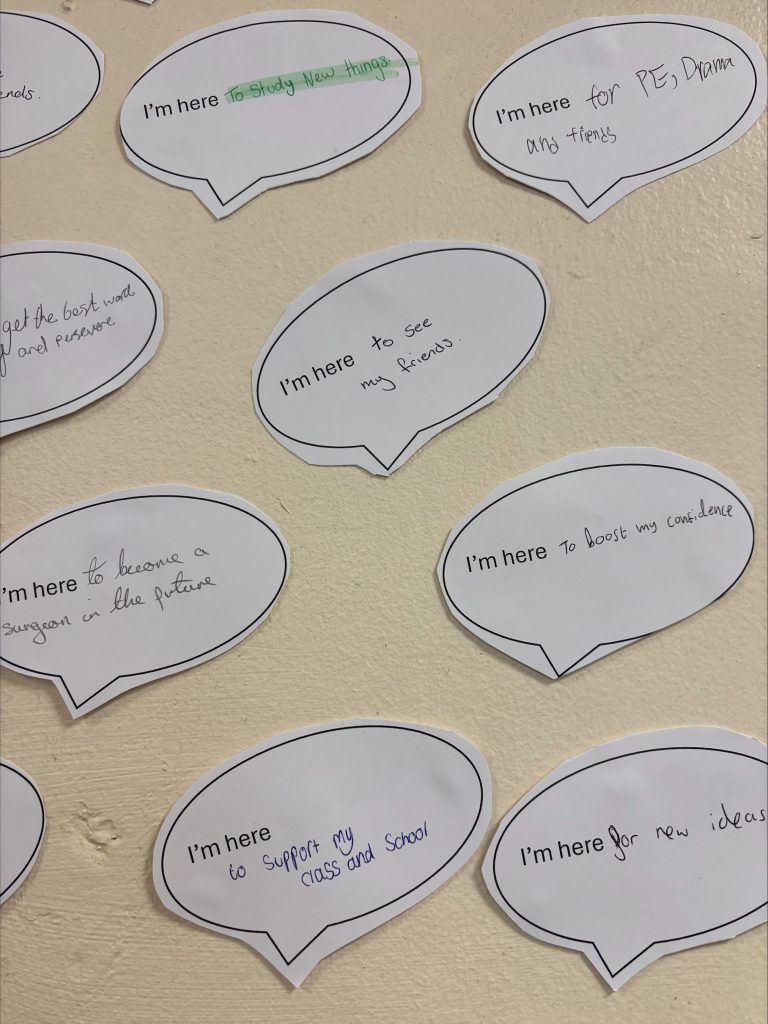 ends.
I'm here To Study New things
I'm here for PE, Drama
and friends
get the best word
and persevere
I'm here to see
my friends.
I'm here to become a
surgeon in the future
I'm here To boost my confidence
I'm here
to support my
class and School
I'm here for new ideas